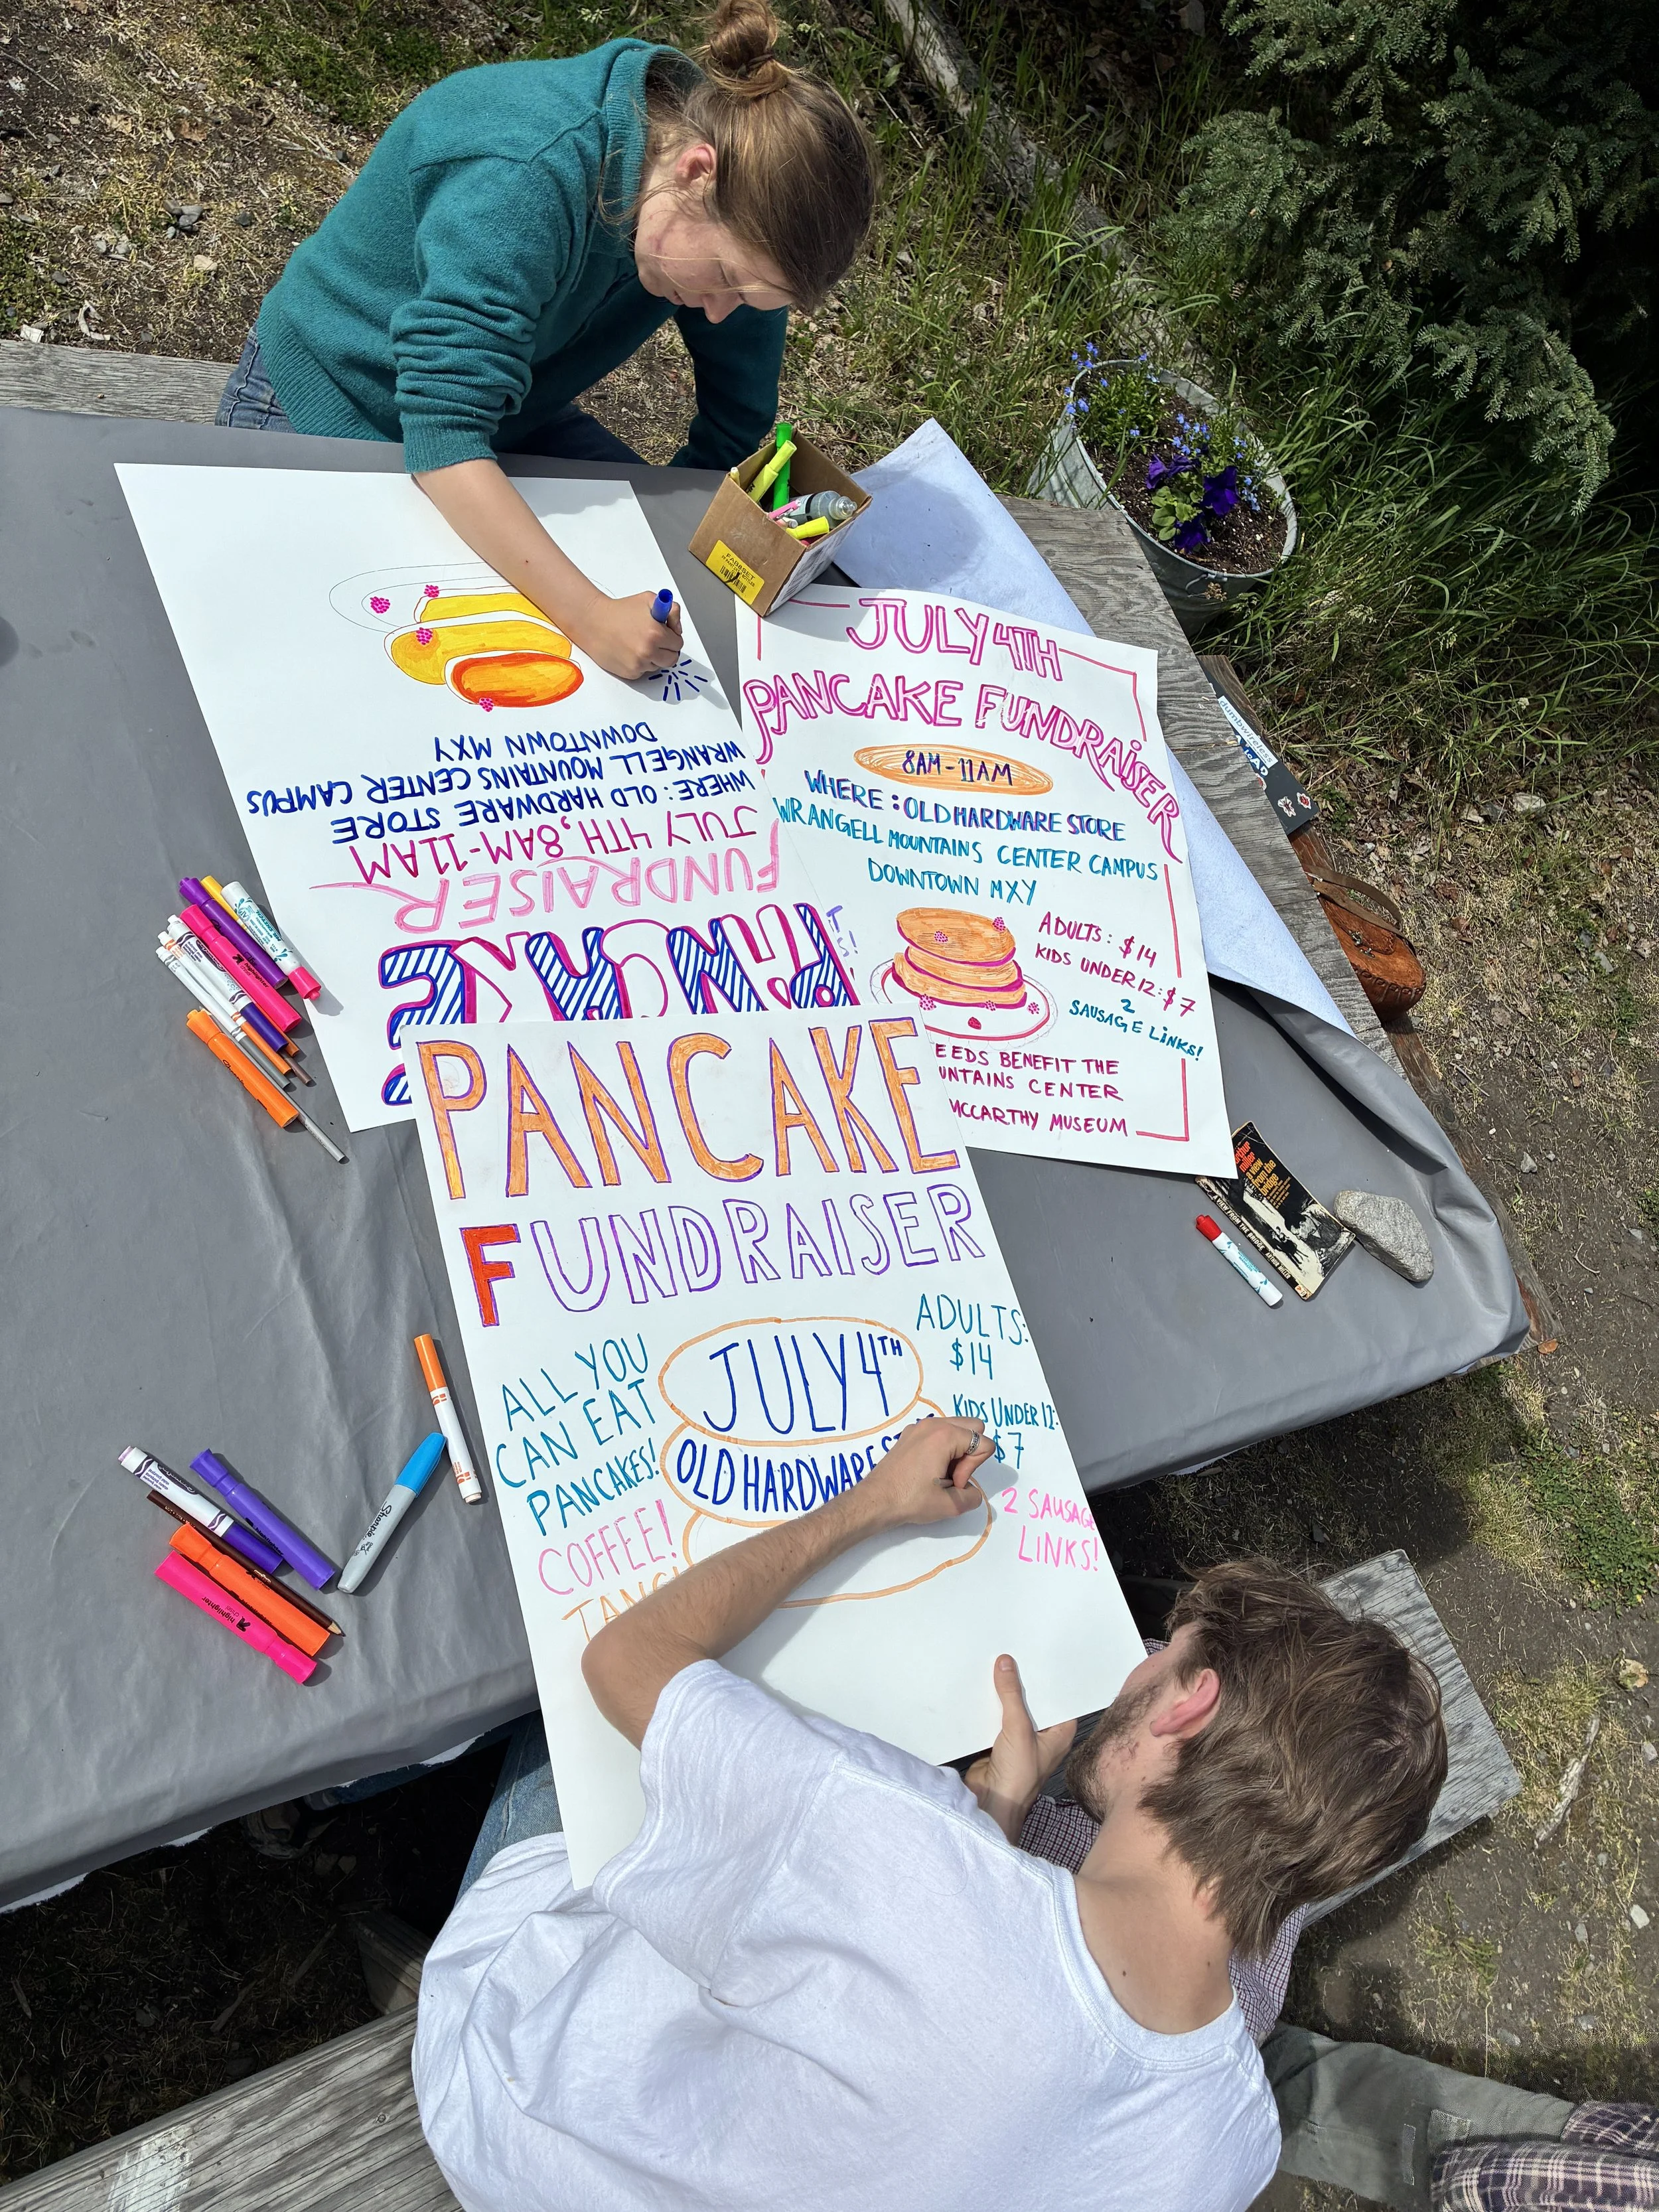 JULY 4TH
PANCAKE FUNDRAiSER
8AM-11AM
WHERE: OLD HARDWARE STORE
WRANGELL MOUNTAINS CENTER CAMPUS
DOWNTOWN MXY
ADULTS: $14
KIDS UNDER 12: $7
2
SAUSAGE LiNKS!
EEDS BENEFIT THE
UNTAINS CENTER
MCCARTHY MUSEUM
PANCAKE
FUNDRAISER
JULY 4TH, 8AM-11AM
WHERE: OLD HARDWARE STORE
WRANGELL MOUNTAINS CENTER CAMPUS
DOWNTOWN MXY
PANCAKE
FUNDRAISER
ALL YOU
CAN EAT
PANCAKES!
COFFEE!
TANG!
JULY 4TH
OLD HARDWARE ST
ADULTS:
$14
KIDS UNDER 12:
$7
2 SAUSAGE
LINKS!
dumbwireless
Sharpie
highlighter
arthur
miller
A view
from the
bridge
A VIEW FROM THE BRIDGE ARTHUR MILLER